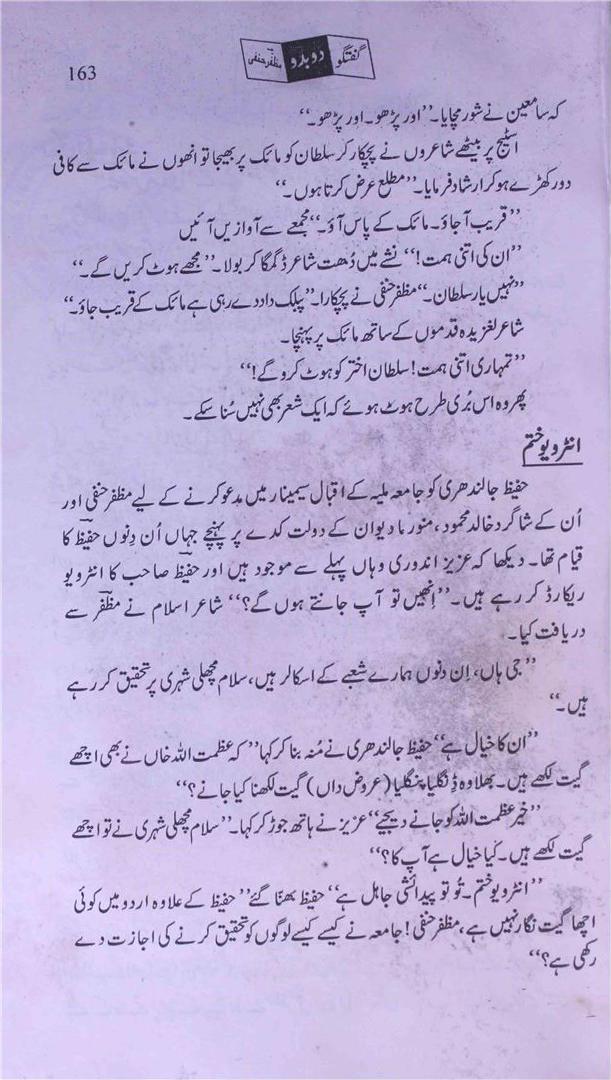 163
گفتگو دو بدو مظفر حنفی
کہ سامعین نے شور مچایا۔ ’’اور پڑھو۔ اور پڑھو۔‘‘
اسٹیج پر بیٹھے شاعروں نے پچکار کر سلطان کو مائک پر بھیجا تو انھوں نے مائک سے کافی
دور کھڑے ہو کر ارشاد فرمایا۔ ’’مطلع عرض کرتا ہوں۔‘‘
’’قریب آجاؤ۔ مائک کے پاس آؤ۔‘‘ مجمعے سے آوازیں آئیں
’’ان کی اتنی ہمت!‘‘ نشے میں دُھت شاعر ڈگمگا کر بولا۔ ’’مجھے ہوٹ کریں گے۔‘‘
’’نہیں یار سلطان۔‘‘ مظفر حنفی نے پچکارا۔ ’’پبلک داد دے رہی ہے مائک کے قریب جاؤ۔‘‘
شاعر لغزیدہ قدموں کے ساتھ مائک پر پہنچا۔
’’تمہاری اتنی ہمت! سلطان اختر کو ہوٹ کرو گے!‘‘
پھر وہ اس بُری طرح ہوٹ ہوئے کہ ایک شعر بھی نہیں سُنا سکے۔
انٹرویو ختم
حفیظ جالندھری کو جامعہ ملیہ کے اقبال سیمینار میں مدعو کرنے کے لیے مظفر حنفی اور
اُن کے شاگرد خالد محمود، منورما دیوان کے دولت کدے پر پہنچے جہاں اُن دِنوں حفیظؔ کا
قیام تھا۔ دیکھا کہ عزیز اندوری وہاں پہلے سے موجود ہیں اور حفیظؔ صاحب کا انٹرویو
ریکارڈ کر رہے ہیں۔ ’’اِنھیں تو آپ جانتے ہوں گے؟‘‘ شاعرِ اسلام نے مظفرؔ سے
دریافت کیا۔
’’جی ہاں، اِن دنوں ہمارے شعبے کے اسکالر ہیں، سلام مچھلی شہری پر تحقیق کر رہے
ہیں۔‘‘
’’ان کا خیال ہے‘‘ حفیظ جالندھری نے مُنہ بنا کر کہا ’’کہ عظمت اللہ خاں نے بھی اچھے
گیت لکھے ہیں۔ بھلا وہ ڈِنگلیا پنگلیا (عروض داں) گیت لکھنا کیا جانے؟‘‘
’’خیر عظمت اللہ کو جانے دیجیے‘‘ عزیز نے ہاتھ جوڑ کر کہا۔ ’’سلام مچھلی شہری نے تو اچھے
گیت لکھے ہیں۔ کیا خیال ہے آپ کا؟‘‘
’’انٹرویو ختم۔ تُو تو پیدائشی جاہل ہے‘‘ حفیظ بھنّا گئے ’’حفیظ کے علاوہ اردو میں کوئی
اچھا گیت نگار نہیں ہے، مظفر حنفی! جامعہ نے کیسے کیسے لوگوں کو تحقیق کرنے کی اجازت دے
رکھی ہے؟‘‘